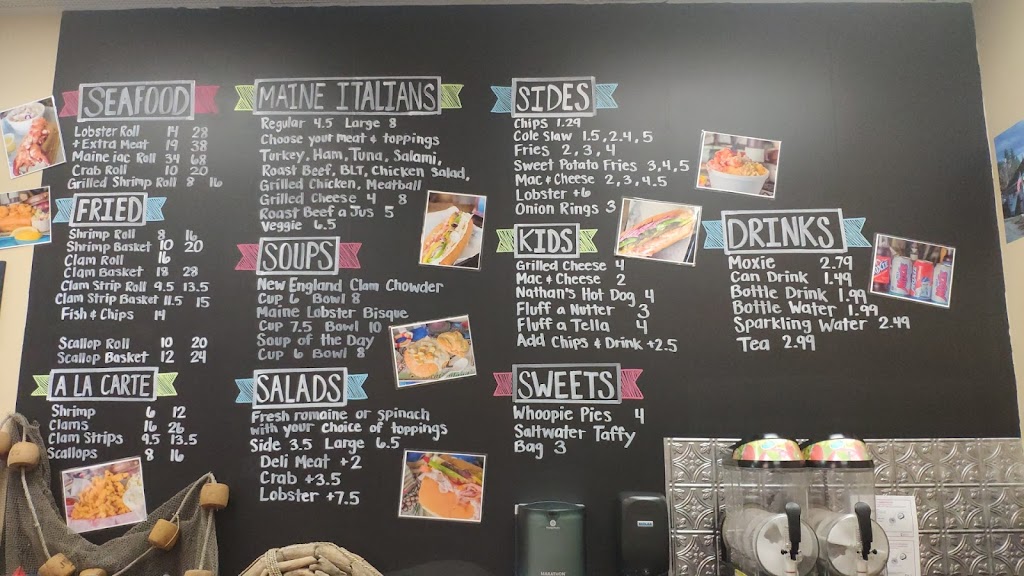 SEAFOOD
Lobster Roll 14 28
+Extra Meat 19 38
Maine iac Roll 34 68
Crab Roll 10 20
Grilled Shrimp Roll 8 16
FRIED
Shrimp Roll 8 16
Shrimp Basket 10 20
Clam Roll 16
Clam Basket 18 28
Clam Strip Roll 9.5 13.5
Clam Strip Basket 11.5 15
Fish & Chips 14
Scallop Roll 10 20
Scallop Basket 12 24
A LA CARTE
Shrimp 6 12
Clams 16 26
Clam Strips 9.5 13.5
Scallops 8 16
MAINE ITALIANS
Regular 4.5 Large 8
Choose your meat & toppings
Turkey, Ham, Tuna, Salami,
Roast Beef, BLT, Chicken Salad,
Grilled Chicken, Meatball
Grilled Cheese 4 8
Roast Beef a Jus 5
Veggie 6.5
SOUPS
New England Clam Chowder
Cup 6 Bowl 8
Maine Lobster Bisque
Cup 7.5 Bowl 10
Soup of the Day
Cup 6 Bowl 8
SALADS
Fresh romaine or spinach
with your choice of toppings
Side 3.5 Large 6.5
Deli Meat +2
Crab +3.5
Lobster +7.5
SIDES
Chips 1.29
Cole Slaw 1.5, 2.4, 5
Fries 2, 3, 4
Sweet Potato Fries 3, 4, 5
Mac & Cheese 2, 3, 4.5
Lobster +6
Onion Rings 3
KIDS
Grilled Cheese 4
Mac & Cheese 2
Nathan's Hot Dog 4
Fluff a Nutter 3
Fluff a Tella 4
Add Chips & Drink +2.5
SWEETS
Whoopie Pies 4
Saltwater Taffy
Bag 3
DRINKS
Moxie 2.79
Can Drink 1.49
Bottle Drink 1.99
Bottle Water 1.99
Sparkling Water 2.49
Tea 2.99
MARATHON